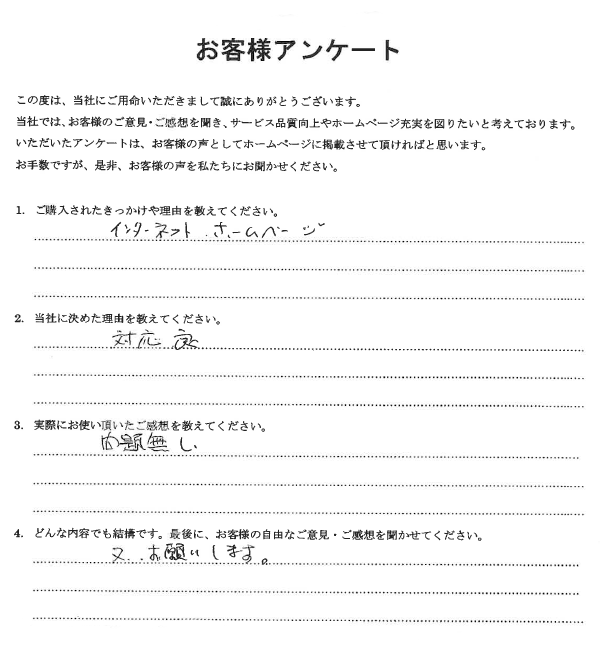 お客様アンケート
この度は、当社にご用命いただきまして誠にありがとうございます。
当社では、お客様のご意見・ご感想を聞き、サービス品質向上やホームページ充実を図りたいと考えております。
いただいたアンケートは、お客様の声としてホームページに掲載させて頂ければと思います。
お手数ですが、是非、お客様の声を私たちにお聞かせください。
1. ご購入されたきっかけや理由を教えてください。
インターネット.ホームページ
2. 当社に決めた理由を教えてください。
対応 良
3. 実際にお使い頂いたご感想を教えてください。
問題無し
4. どんな内容でも結構です。最後に、お客様の自由なご意見・ご感想を聞かせてください。
又、お願いします。